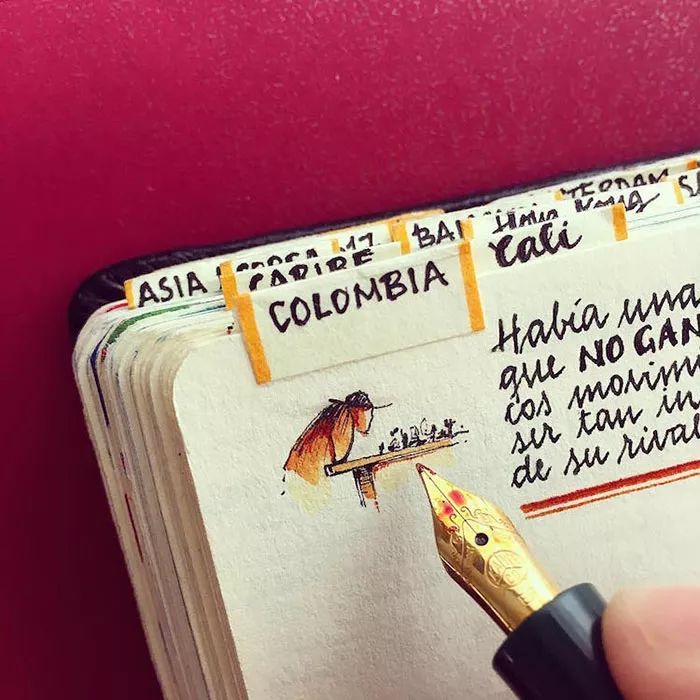 ASIA
CARIBE
BAN
Hong Kong
COLOMBIA
Cali
Había una
que NO GAN
cos movimi
ser tan in
de su rival